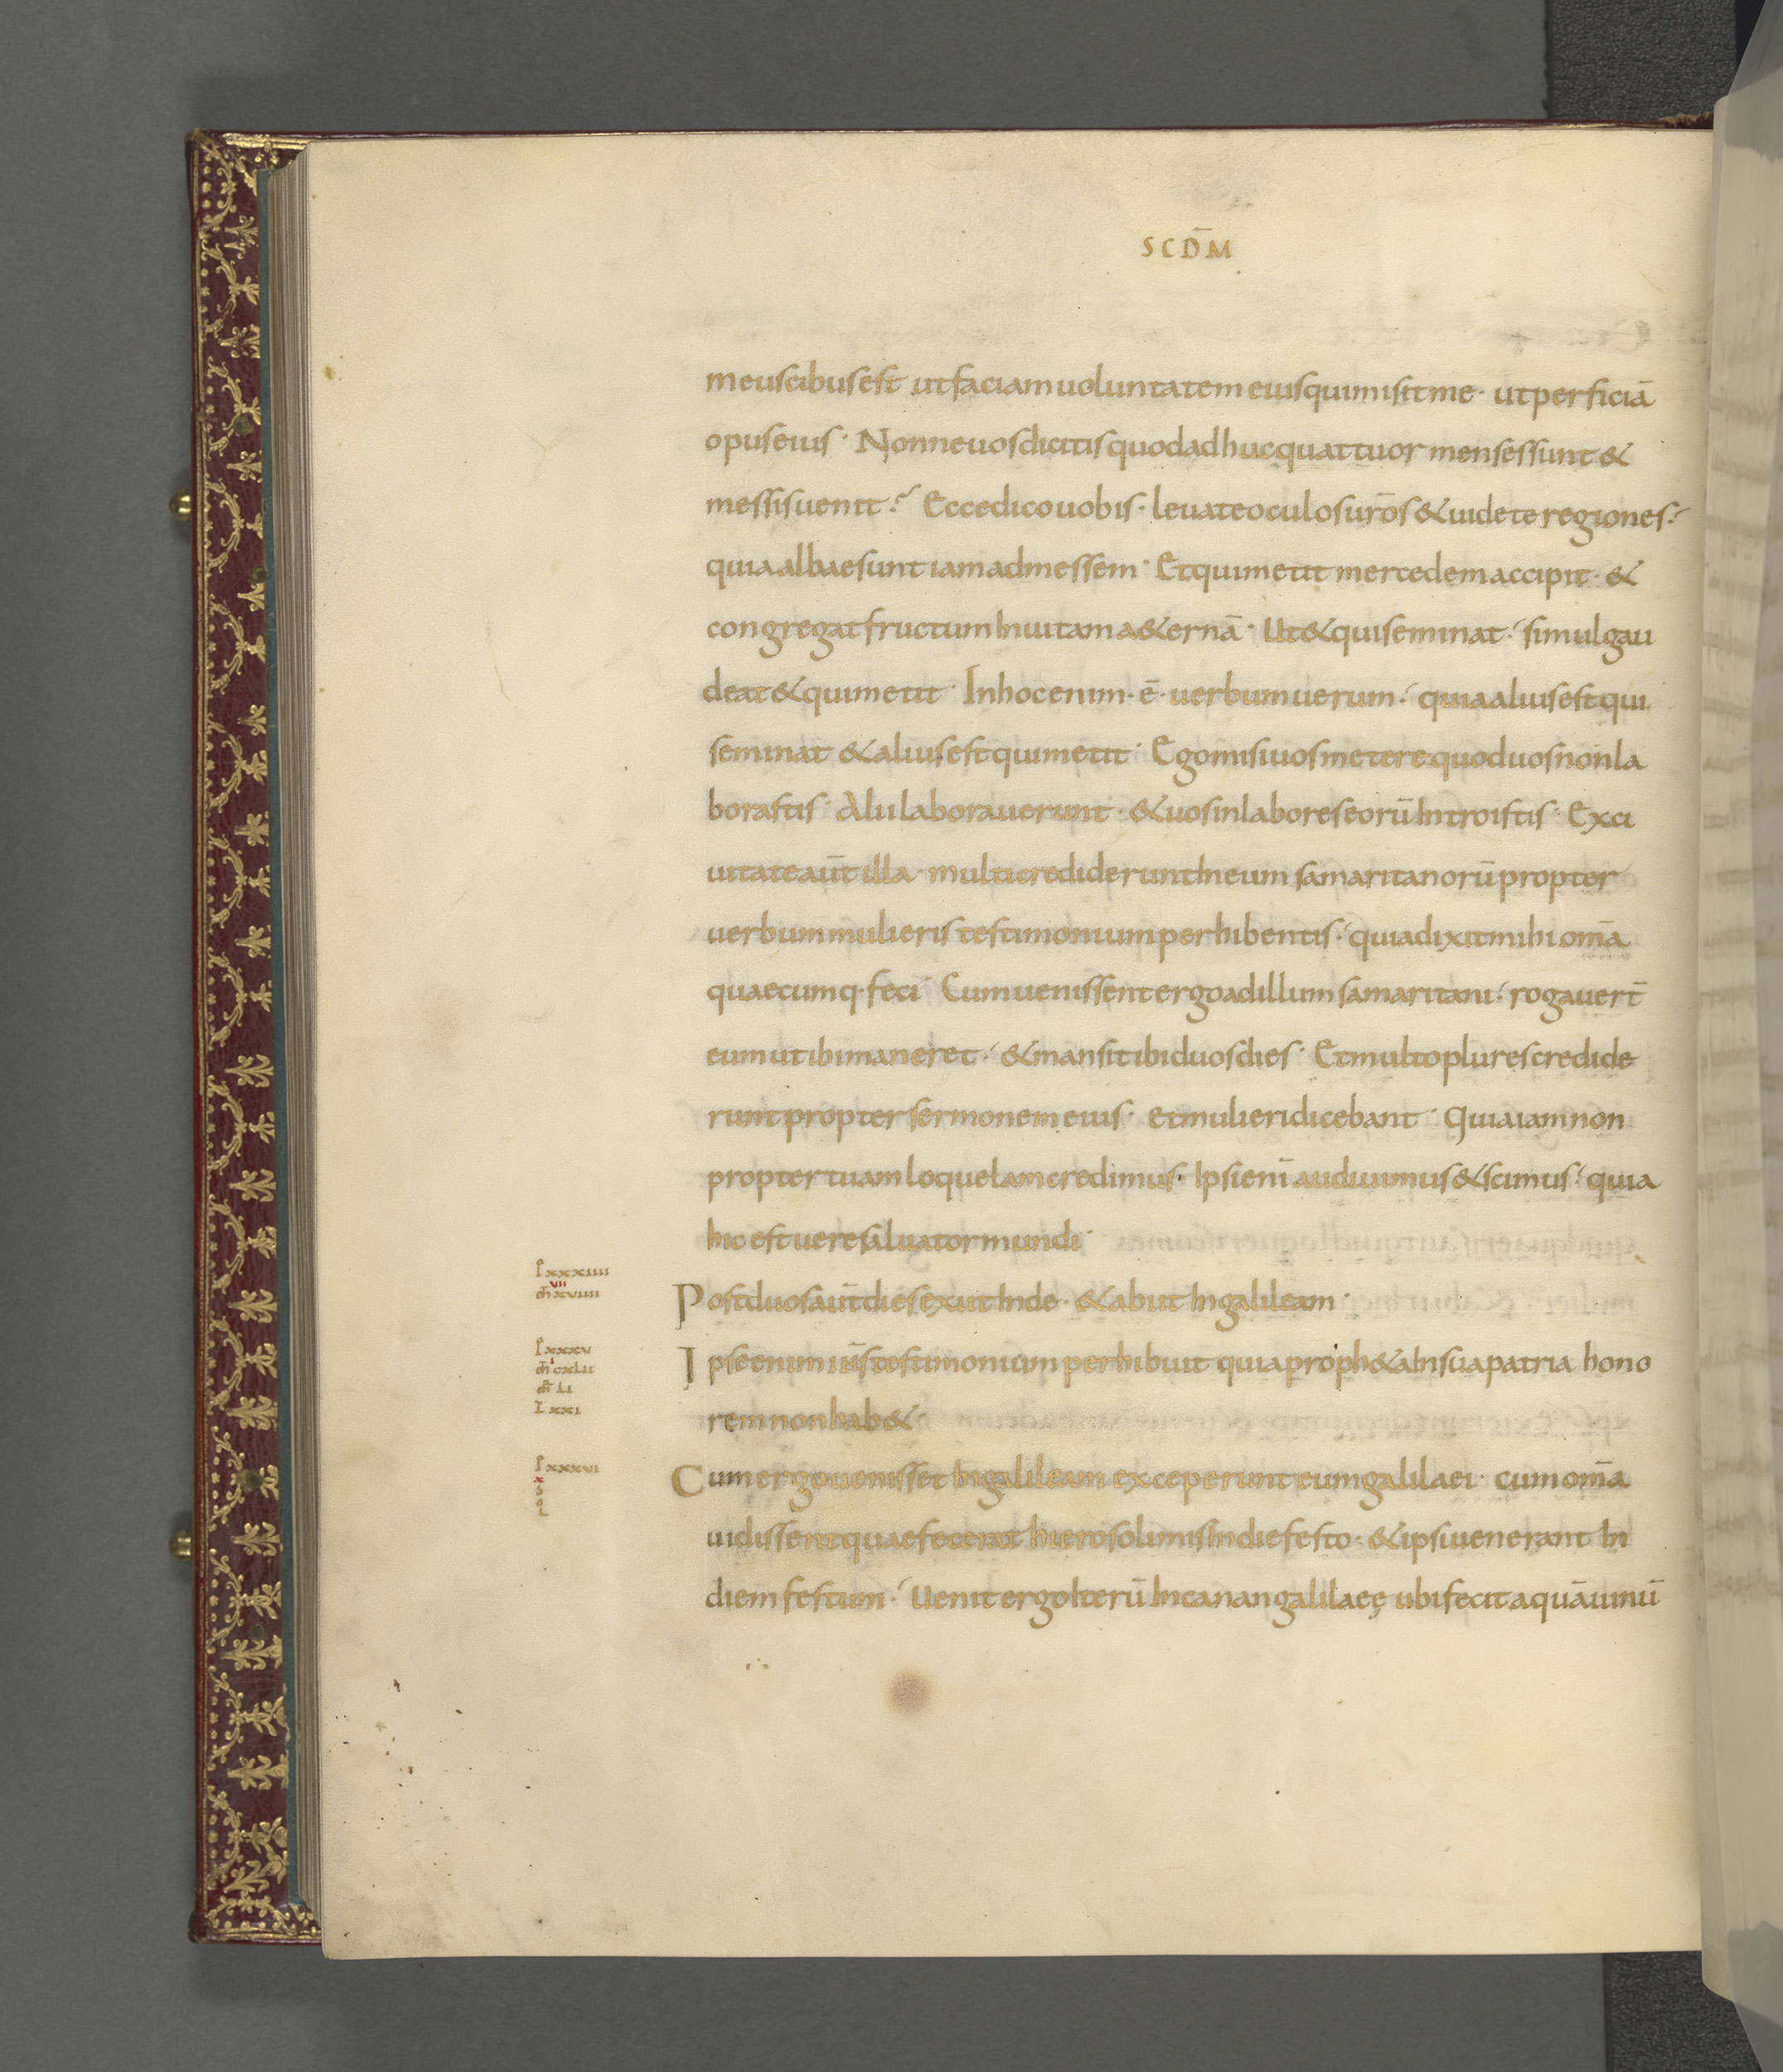 SCD̄M
meus cibus est ut faciam uoluntatem eius qui misit me · ut perficiā
opus eius · Nonne uos dicitis quod adhuc quattuor menses sunt &
messis uenit ·? Ecce dico uobis · leuate oculos ur̄os & uidete regiones ·
quia albae sunt iam ad messem · Et qui metit mercedem accipit · &
congregat fructum In uitam a&ernā · Ut & qui seminat · simul gau
deat & qui metit · In hoc enim · ē · uerbum uerum · quia alius est qui
seminat & alius est qui metit · Ego misi uos metere quod uos non la
borastis · Alii laborauerunt · & uos in labores eorū Introistis · Ex ci
uitate aūt illa multi crediderunt In eum samaritanorū propter
uerbum mulieris testimonium perhibentis · quia dixit mihi om̄a
quaecumq· feci · Cum uenissent ergo ad illum samaritani · rogauer̄t
eum ut ibi maneret · & mansit ibi duos dies · Et multo plures credide
runt propter sermonem eius · et mulieri dicebant · Quia iam non
propter tuam loquelam credimus · Ipsi eni̅ audiuimus & scimus · quia
hic est uere saluator mundi ·
I xxxiiii
vii
m̄ xviiii
Post duos aūt dies exiit Inde · & abiit In galileam ·
I xxxv
i
m̄ cxlii
m̄ li
L xxi
Ipse enim iūs testimonium perhibuit quia proph&a In sua patria hono
rem non hab& ·
I xxxvi
x
Cum ergo uenisset In galileam exceperunt eum galilaei · cum om̄a
uidissent quae fecerat hierosolimis In die festo · & ipsi uenerant In
diem festum · Uenit ergo Iterū In canan galilaeę ubi fecit aquā uinū